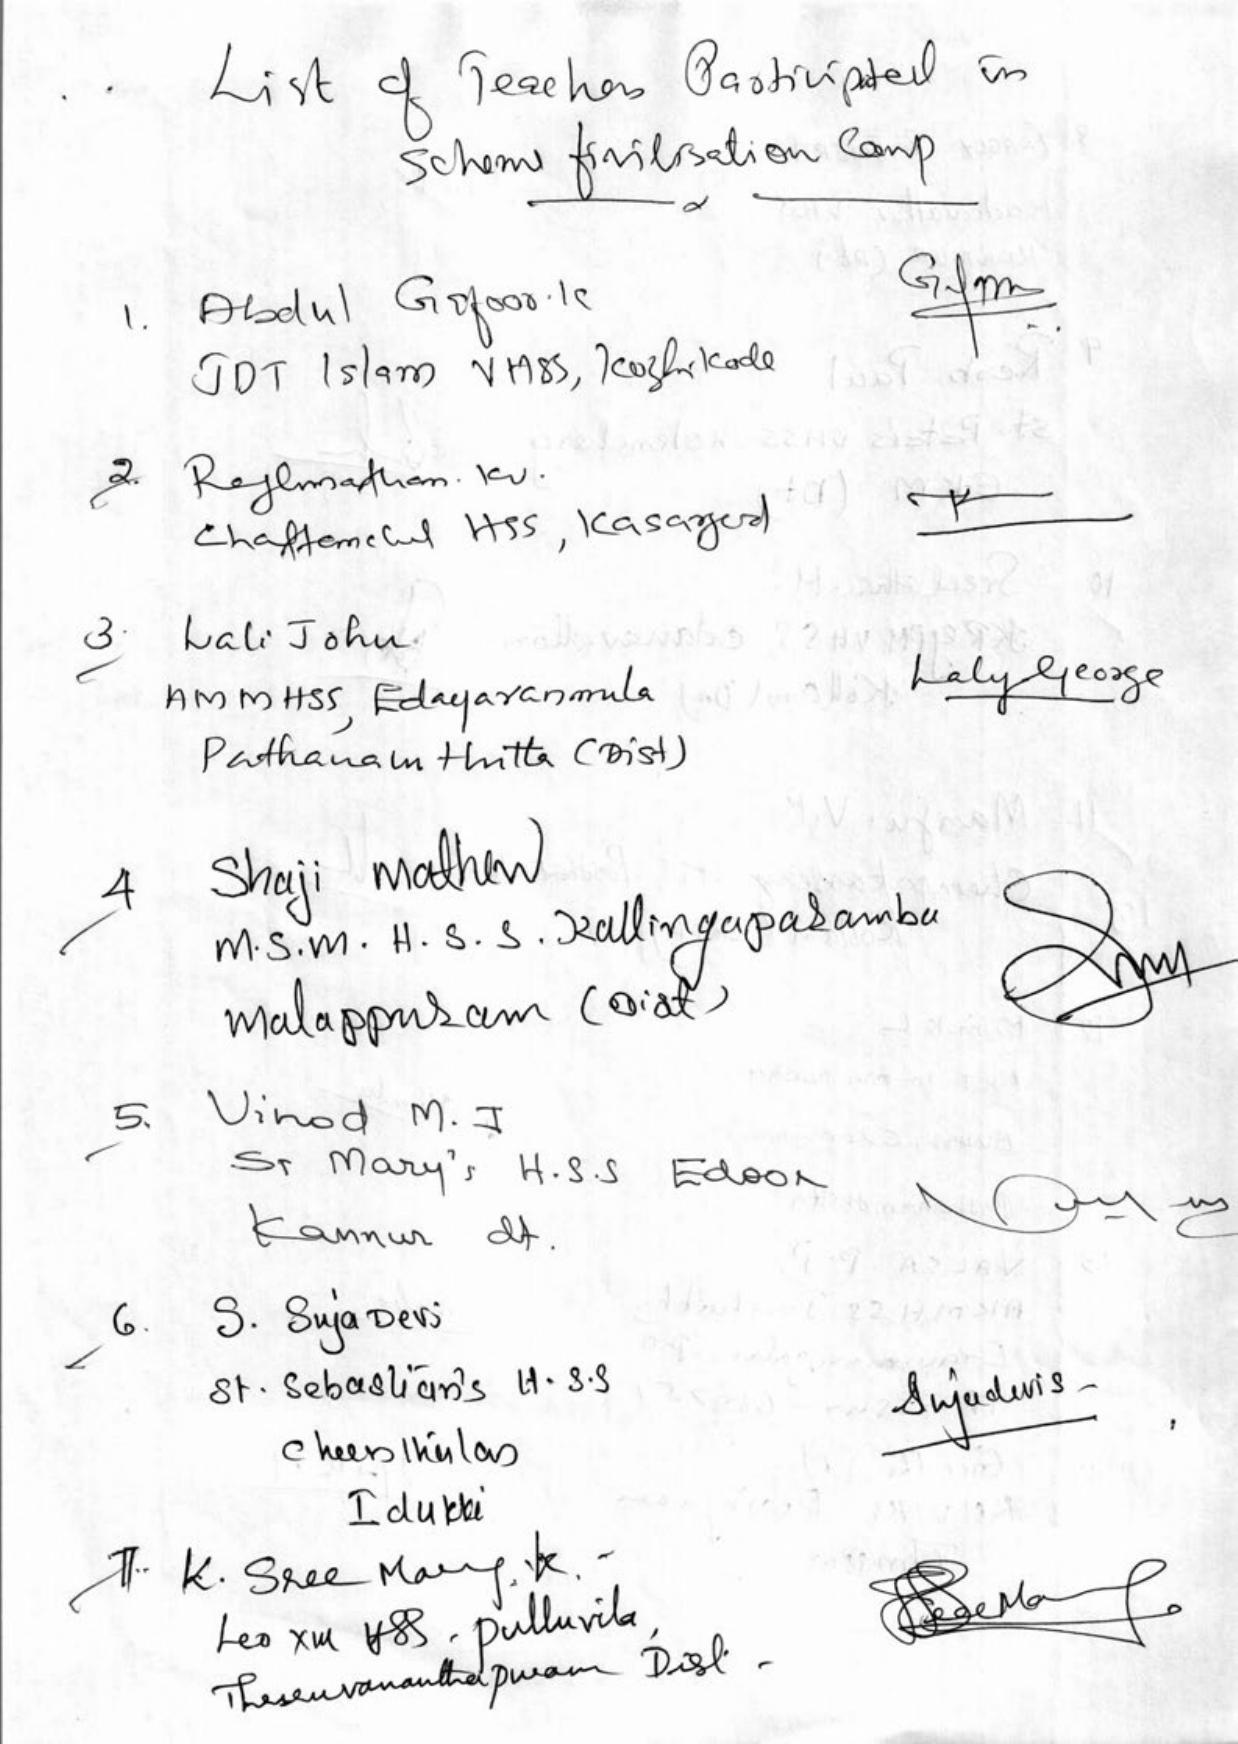 List of Teachers Participated in
Scheme finilisation Camp
1. Abdul Gafoor.K
JDT Islam VHSS, Kozhikode
2. Raghunathan. KV.
Chattanchal HSS, Kasargod
3. Lali John.
AMMHSS, Edayaranmula
Pathanamthitta (Dist)
Laly George
4 Shaji Mathew
M.S.M. H.S.S. Kallingaparamba
Malappuram (Dist)
5. Vinod M.J
St Mary's H.S.S Edoor
Kannur dt.
6. S. Suja Devi
St. Sebastian's H.S.S
Idukki
Sujadevi S
7. K. Sree
Leo XIII HSS. Pulluvila,
Dist.